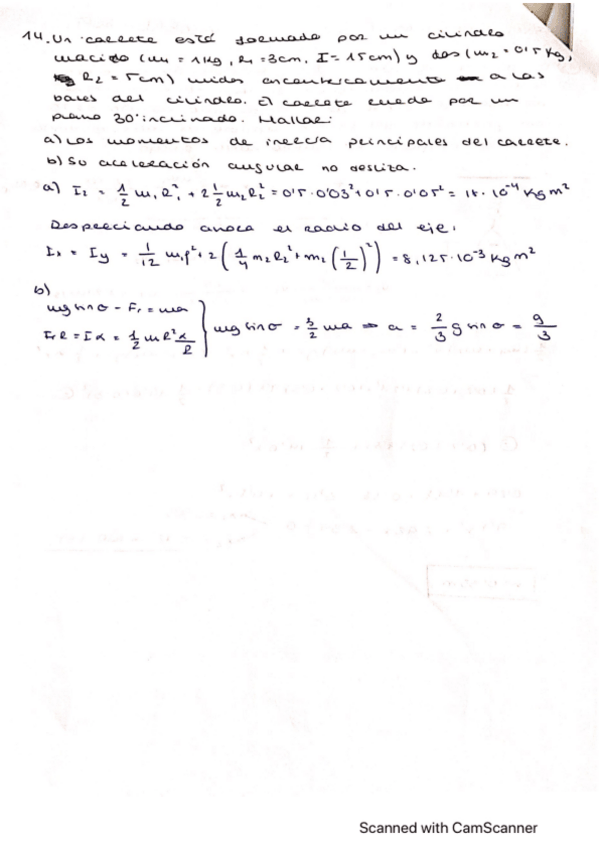 14. Un carrete está formado por un cilindro
macizo (m1 = 1kg, R1 = 3cm, I = 15cm) y dos (m2 = 0'5 kg,
R2 = 5cm) unidos concéntricamente a las
bases del cilindro. El carrete rueda por un
plano 30° inclinado. Hallar:
a) Los momentos de inercia principales del carrete.
b) Su aceleración angular no desliza.
a) Iz = 1/2 m1 R1² + 2 1/2 m2 R2² = 0'5 · 0'03² + 0'5 · 0'05² = 17 · 10⁻⁴ kg m²
Despreciando ahora el radio del eje:
Ix = Iy = 1/12 m1 l² + 2 (1/4 m2 R2² + m2 (1/2)²) = 8,125 · 10⁻³ kg m²
b)
mg sin σ - Fr = ma
Fr R = I α = 1/2 m R² a/R } mg sin σ = 3/2 ma ⇒ a = 2/3 g sin σ = g/3
Scanned with CamScanner